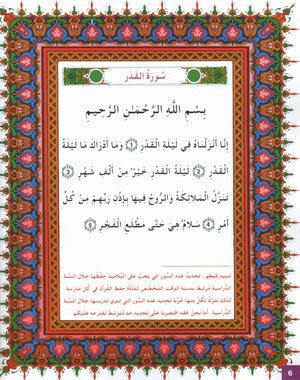 سُورَةُ القَدْر
بِسْمِ اللَّهِ الرَّحْمَٰنِ الرَّحِيمِ
إِنَّا أَنْزَلْنَاهُ فِي لَيْلَةِ الْقَدْرِ ① وَمَا أَدْرَاكَ مَا لَيْلَةُ
الْقَدْرِ ② لَيْلَةُ الْقَدْرِ خَيْرٌ مِنْ أَلْفِ شَهْرٍ ③
تَنَزَّلُ الْمَلَائِكَةُ وَالرُّوحُ فِيهَا بِإِذْنِ رَبِّهِمْ مِنْ كُلِّ
أَمْرٍ ④ سَلَامٌ هِيَ حَتَّى مَطْلَعِ الْفَجْرِ ⑤
تنبيه للمعلم : تحديد عدد السور التي يجب على التلاميذ حفظها خلال السنة
الدراسية مرتبط بنسبة الوقت المخصص لمادة حفظ القرآن في كل مدرسة
لذلك نترك لكل منها حرية تحديد عدد السور التي تنوي تدريسها خلال السنة
الدراسية . أما نحن فقد اقتصرنا على تحديد حد متوسط نقترحه عليكم
6